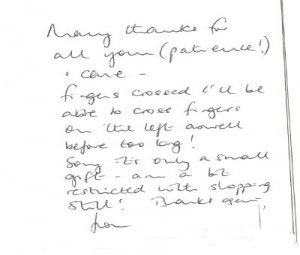 Many thanks for
all your (patience!)
& care -
fingers crossed I'll be
able to cross fingers
on the left aswell
before too long!
Sorry it's only a small
gift - am a bit
restricted with shopping
still! Thanks again,
from